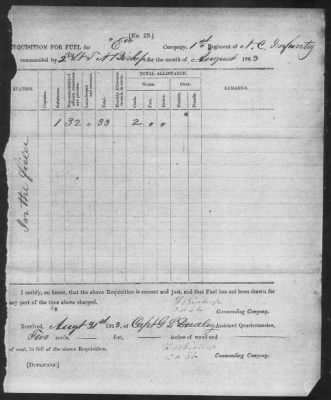 [No. 29.]
REQUISITION FOR FUEL for "E" Company, 1st Regiment of N. C. Infantry
commanded by 2d Lt J A Bishop for the month of August 1863
STATION. Captains. Subalterns. Non-commissioned officers, musicians and privates. Laundresses and servants. Total. Monthly Allowance to each, in cords. TOTAL ALLOWANCE. REMARKS.
WOOD. COAL.
Cords. Feet. Inches. Bushels. Pecks.
In the field 1 32 " 33 2 " "
I certify, on honor, that the above Requisition is correct and just, and that Fuel has not been drawn for
any part of the time above charged.
Commanding Company.
Received, Augt 31st 1863, of Capt G D Assistant Quartermaster,
Two cords, feet, inches of wood and
of coal, in full of the above Requisition.
Commanding Company.
[DUPLICATE.]